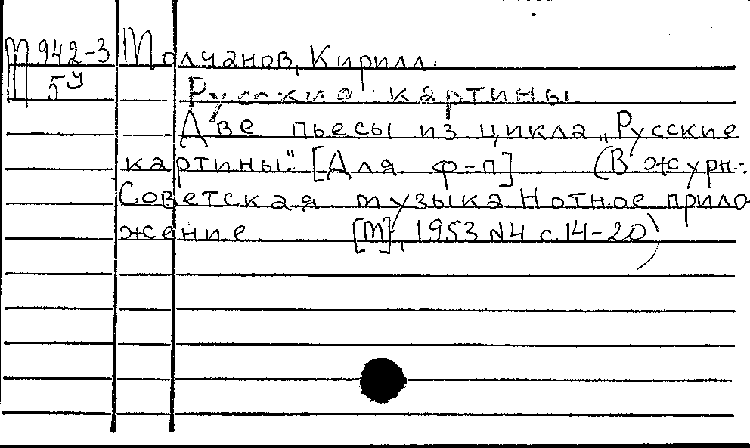 М942-3 Молчанов, Кирилл.
5у Русские картины
Две пьесы из цикла „Русские
картины". [Для ф-п] (В журн.:
Советская музыка Нотное прило
жение [М], 1953 №4 с.14-20)